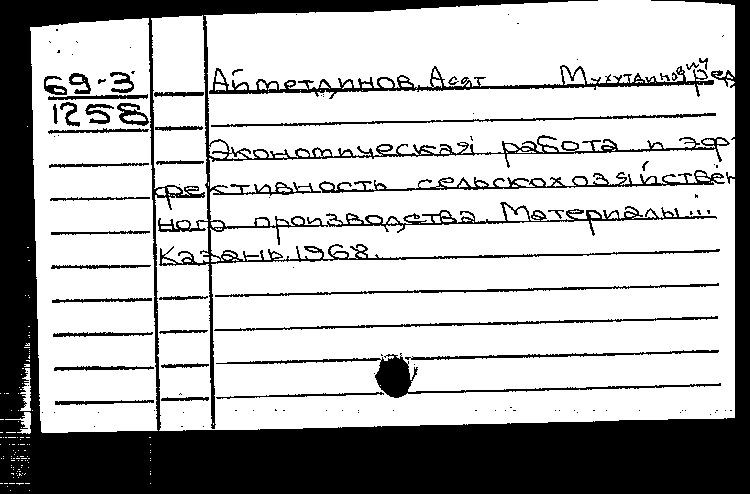 69-3
1258
Айметдинов, Асат Мухутдинович, ред
Экономическая работа и эф-
фективность сельскохозяйствен
ного производства. Материалы...
Казань, 1968.